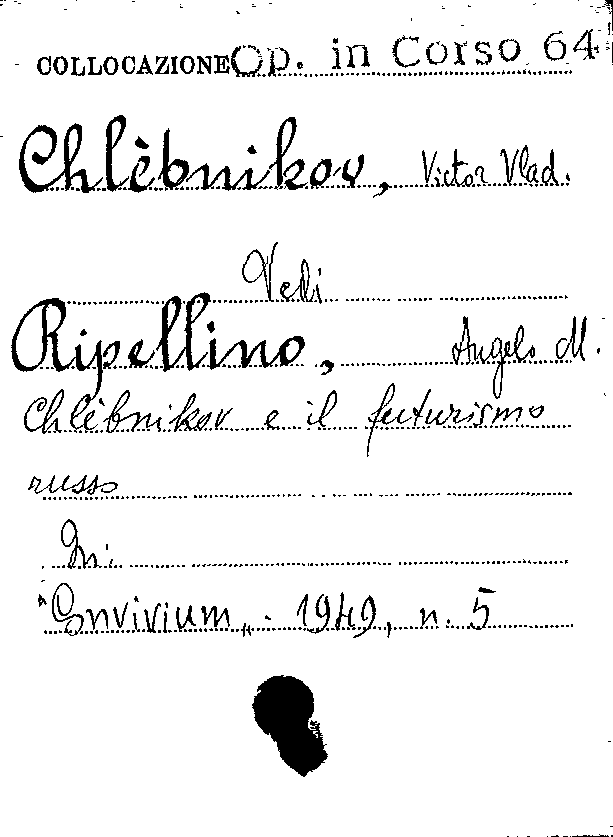 COLLOCAZIONE Op. in Corso 64
Chlèbnikov, Victor Vlad.
Vedi
Ripellino, Angelo M.
Chlèbnikov e il futurismo
russo
In:
"Convivium„. 1949, n. 5